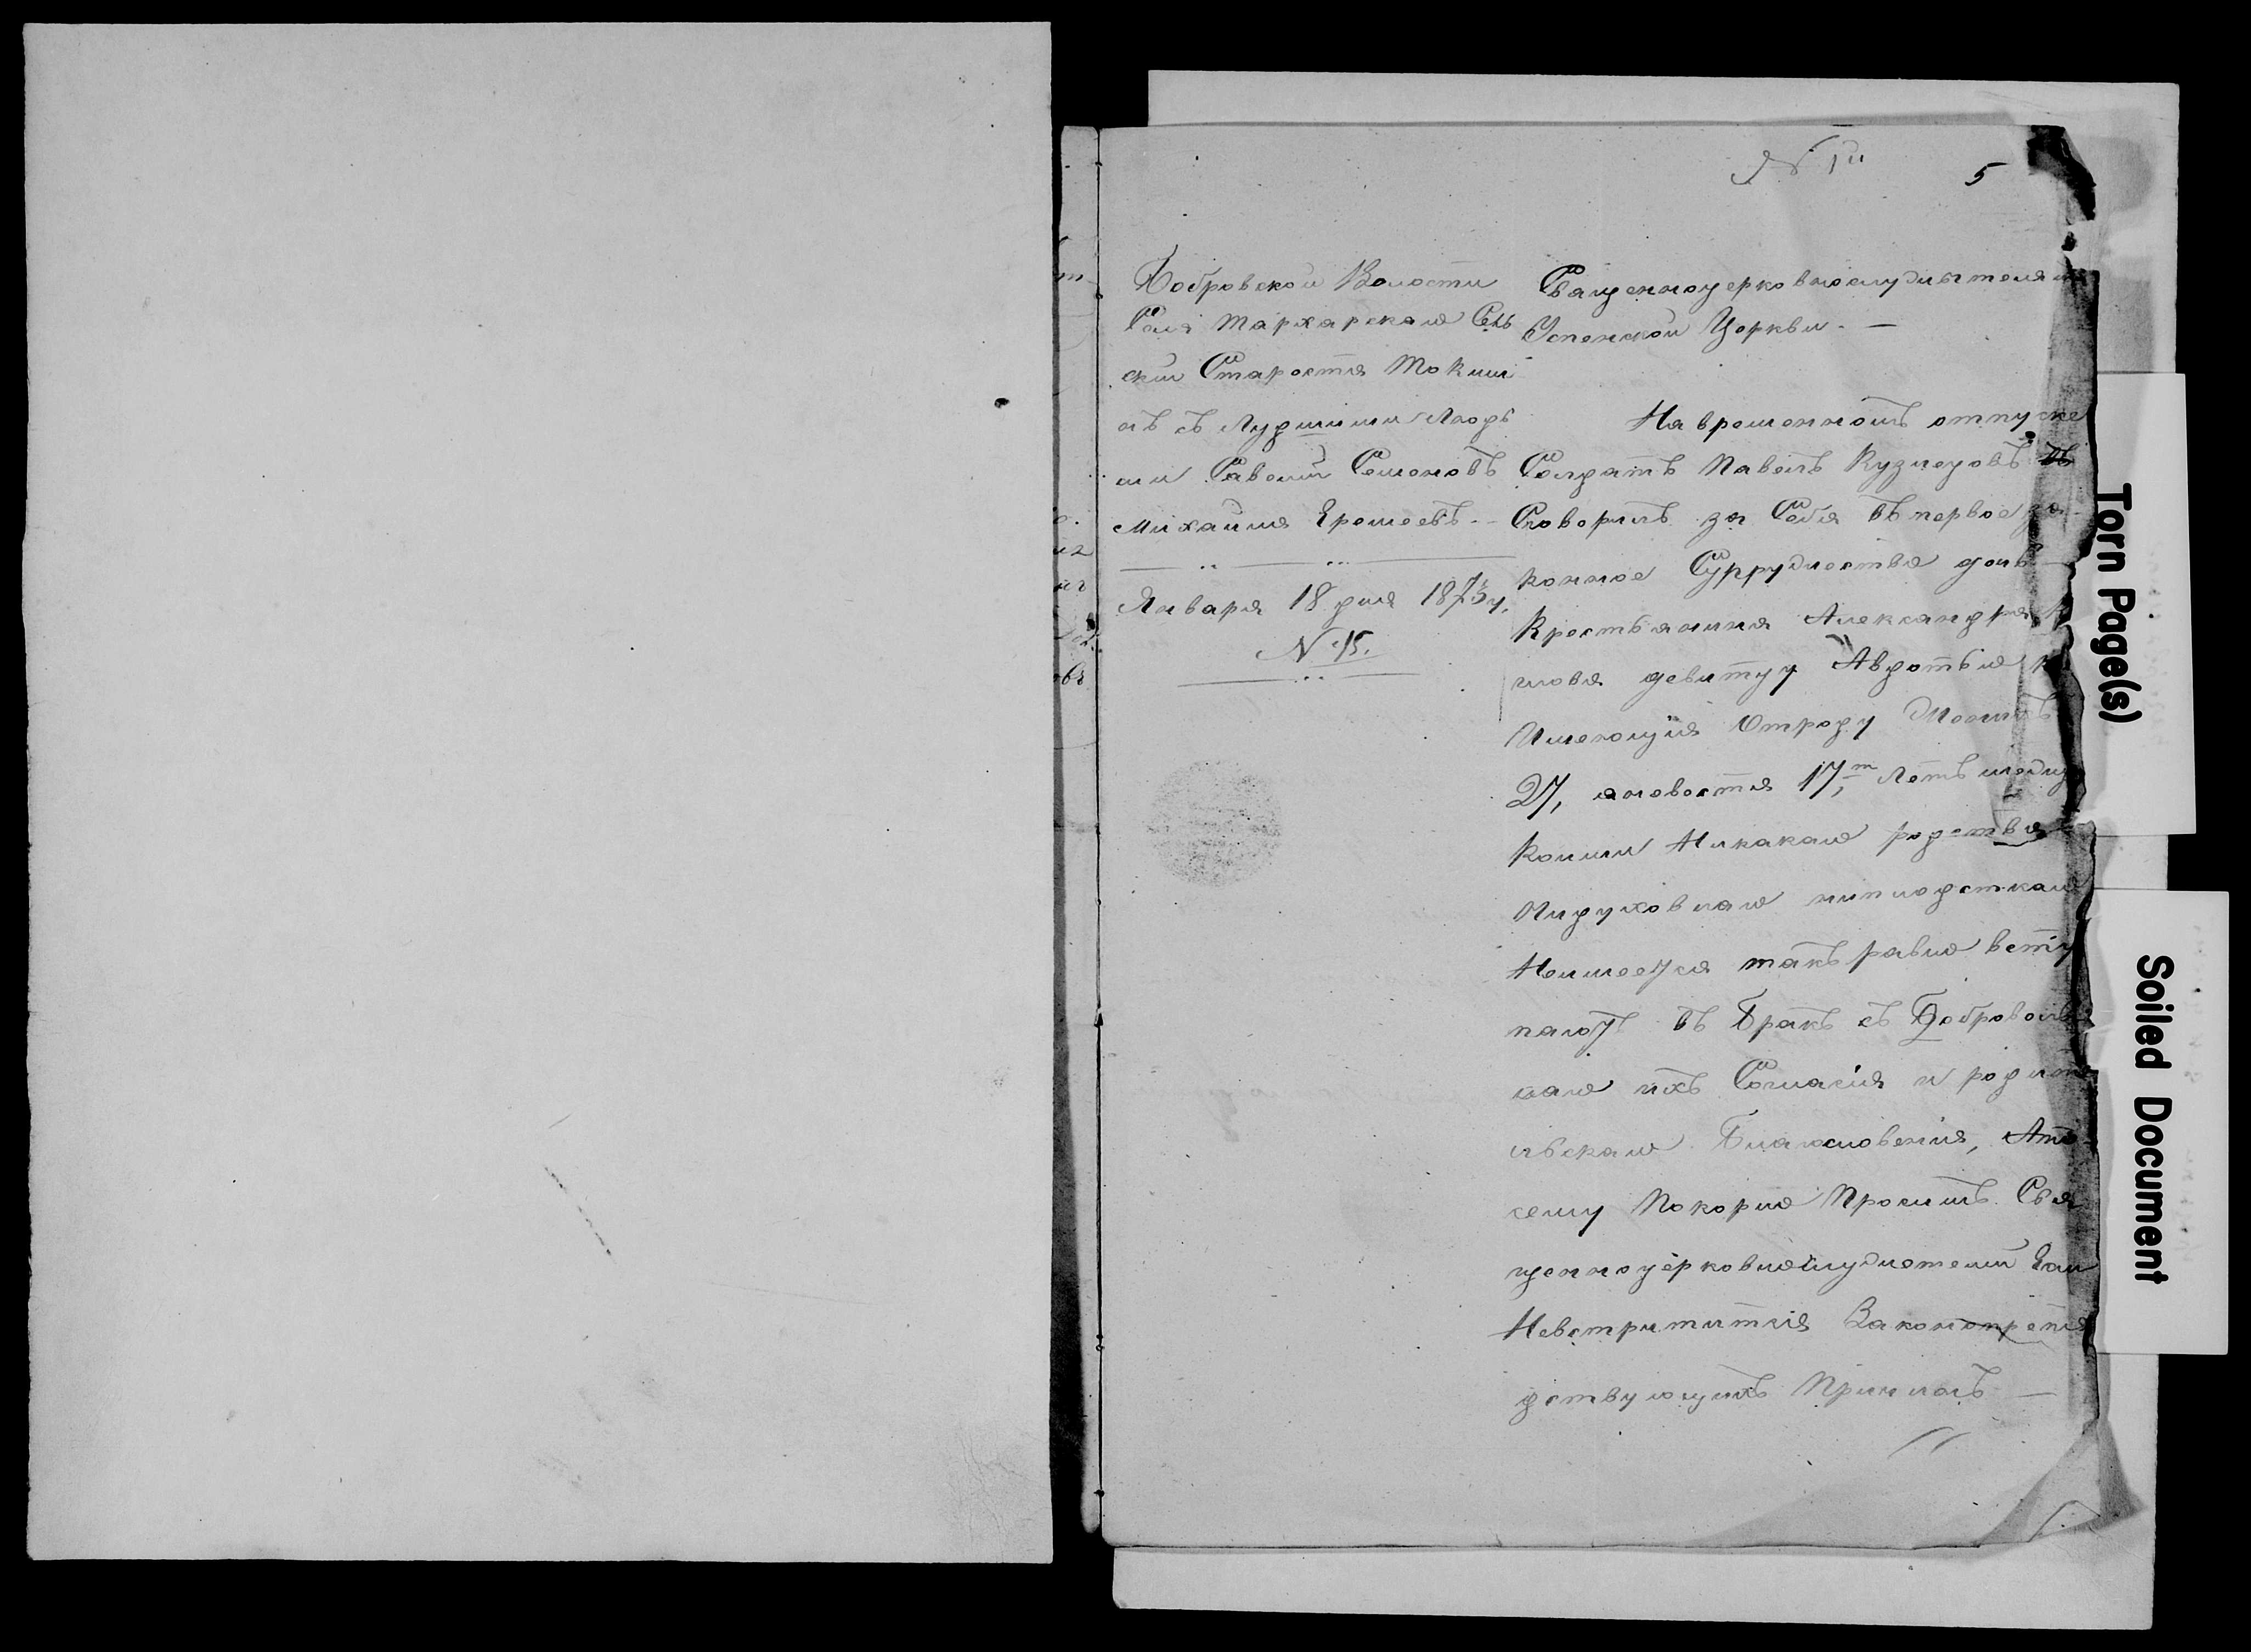 N 1й
5
Бобровской Волости
Села Тархарскаго Сель
ский Староста Токши
нъ съ Лудшими Людь
ми Савелий Семеновъ
Михаила Ерешеевъ. -
Января 18 дня 1873 г.
N 15.
Священноцерковнослужителямъ
Успенской Церкви. —
На временномъ отпуске
Солдатъ Павелъ Кузнецовъ
Сговорилъ за Себя въ первое за-
конное Супружество дочь
Крестьянина Александра
нова девитцу Авдотью
Имеющия Отроду Женихъ
27, аневеста 17, т Летъ между
Коими Никакаго родства
Нидуховнаго ниплодскаго
Неимеетця такъ равно всту
паютъ въ Бракъ съ Доброволь
наго ихъ Согласия и родите
льскаго Благословения, Ато
сему Покорно Просимъ Свя
щенноцерковнослужителей Еже
Невстрититсия Законопрепя
дствующихъ Причинъ —
Torn Page(s)
Soiled Document